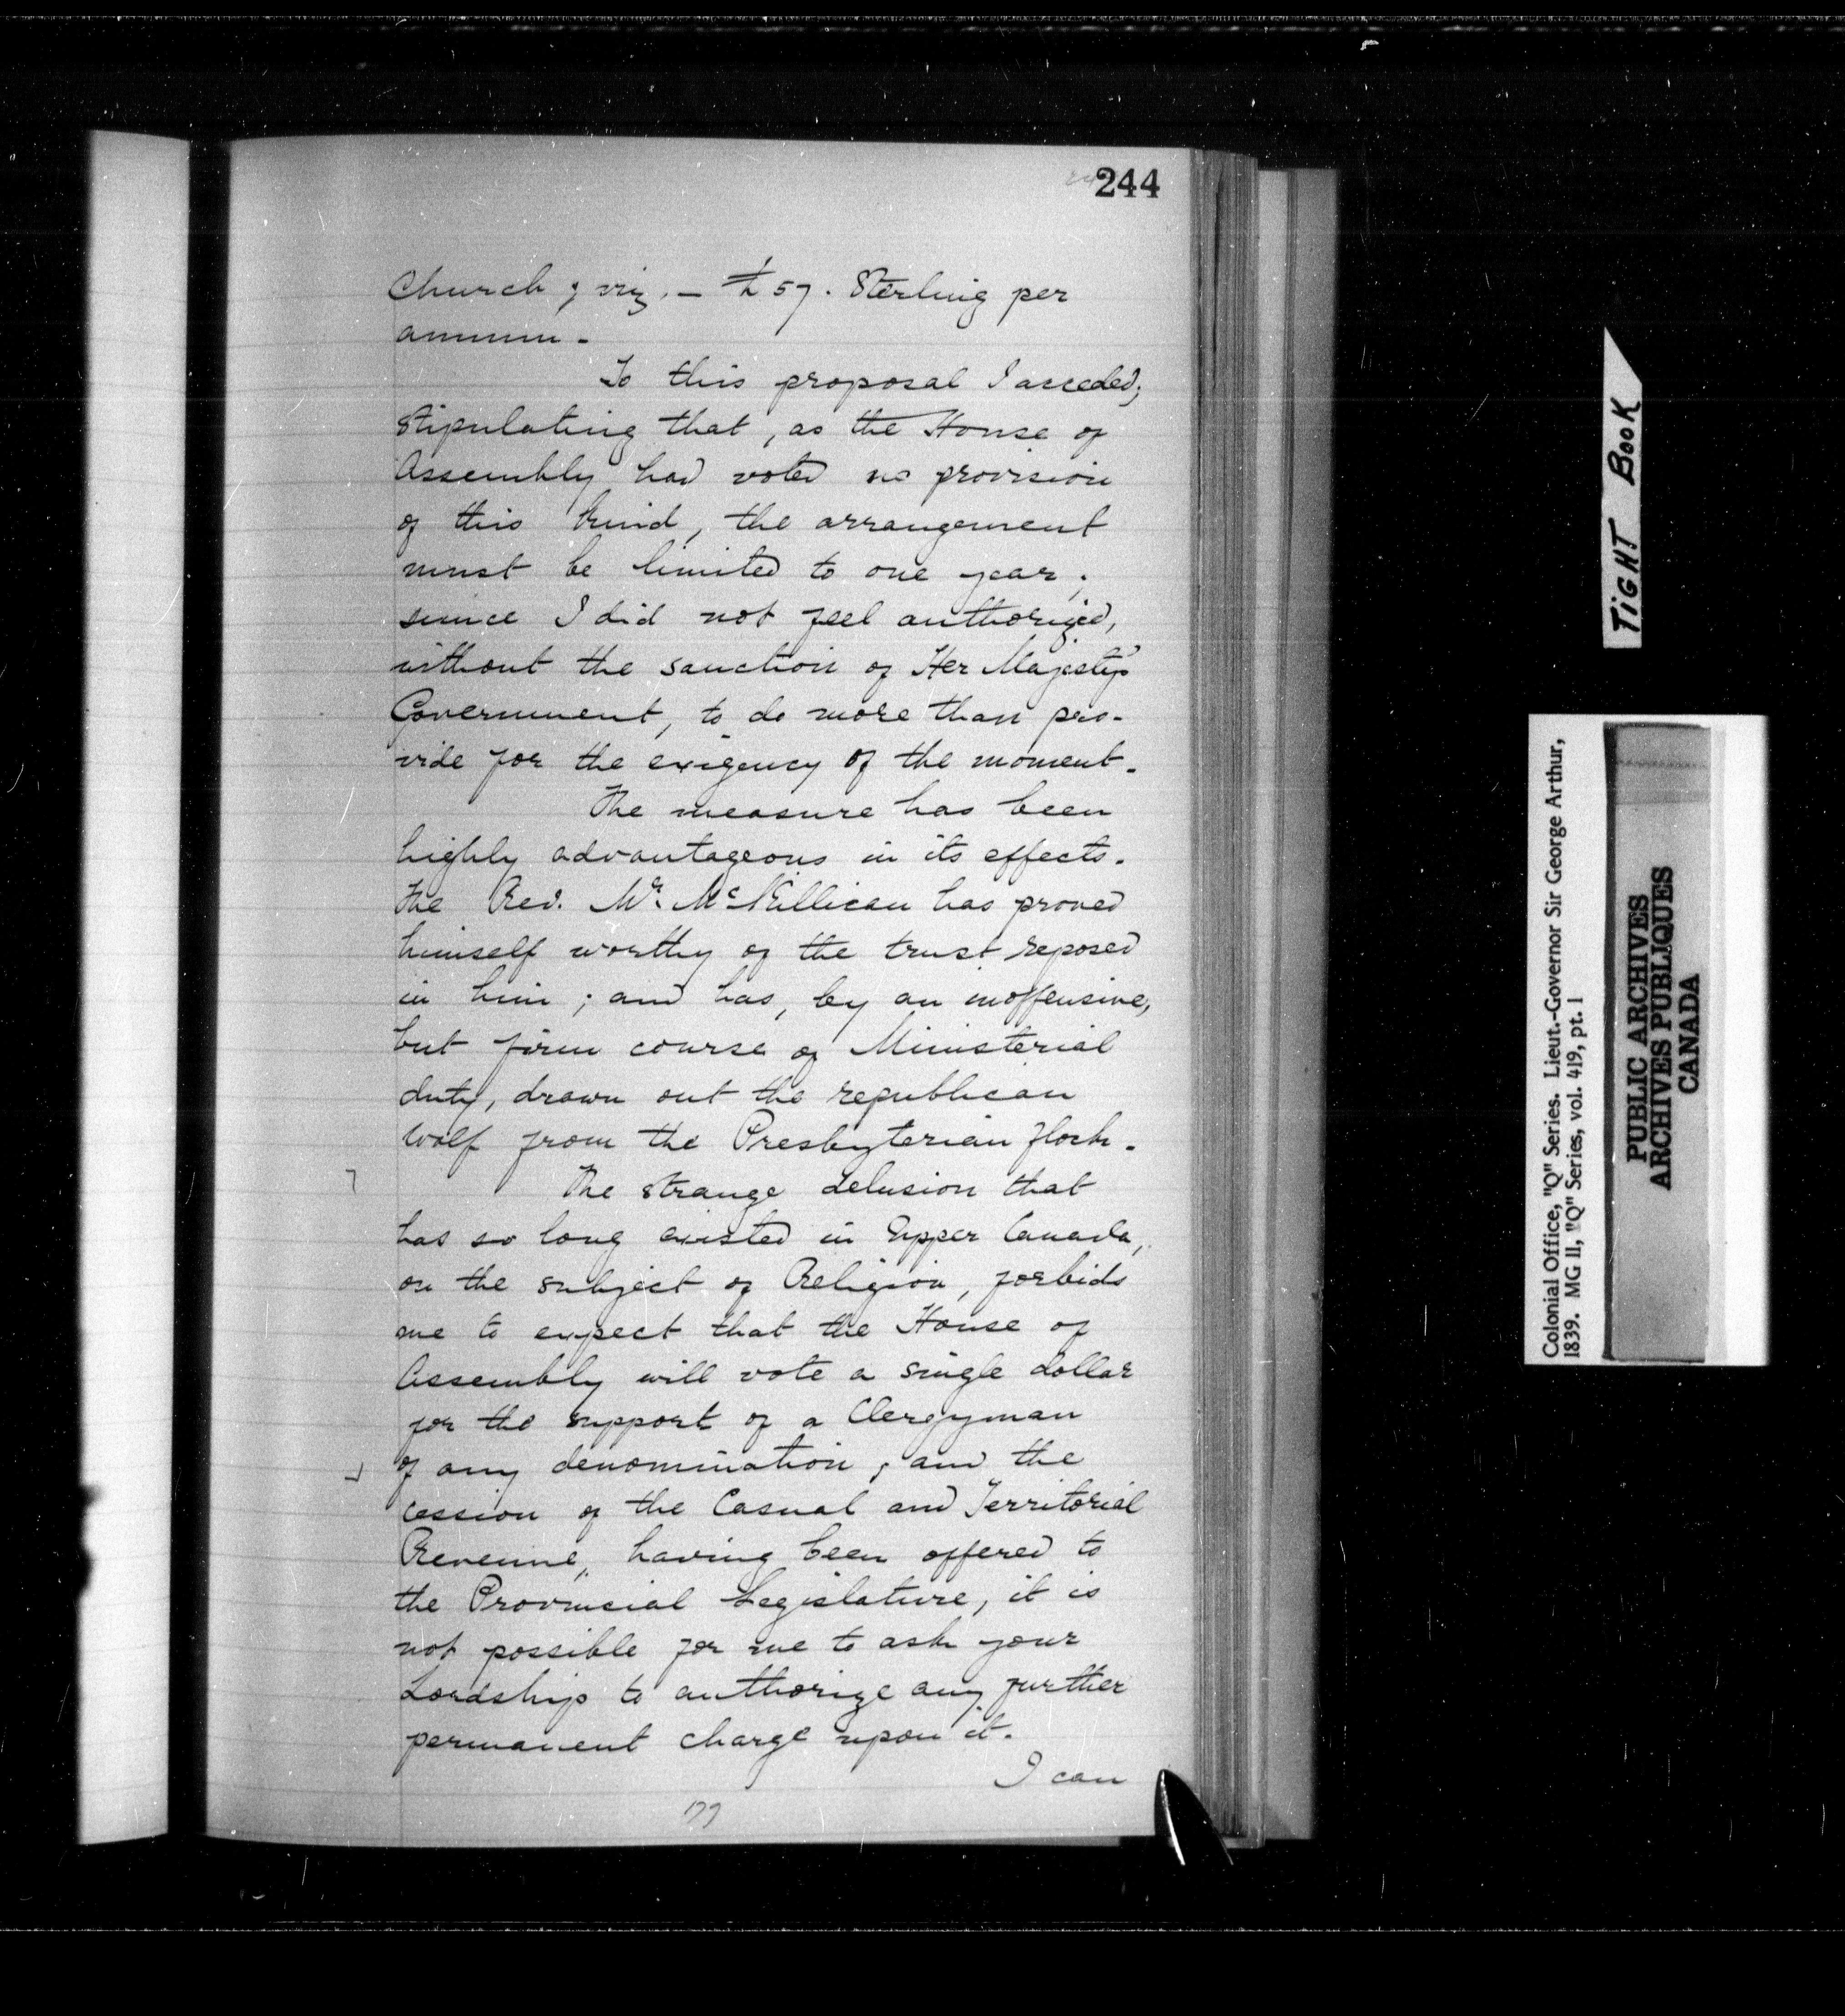 244
Church; viz. — £57. Sterling per
annum -
To this proposal I acceded;
stipulating that, as the House of
Assembly had voted no provision
of this kind, the arrangement
must be limited to one year;
since I did not feel authorized,
without the sanction of Her Majesty's
Government, to do more than pro-
vide for the exigency of the moment.
The measure has been
highly advantageous in its effects.
The Rev. Mr. McKillican has proved
himself worthy of the trust reposed
in him; and has, by an inoffensive,
but firm course of Ministerial
duty, drawn out the republican
Wolf from the Presbyterian flock.
The strange delusion that
has so long existed in Upper Canada,
on the subject of Religion, forbids
me to expect that the House of
Assembly will vote a single dollar
for the support of a Clergyman
of any denomination; and the
cession of the Casual and Territorial
Revenue, having been offered to
the Provincial Legislature, it is
not possible for me to ask your
Lordship to authorize any further
permanent charge upon it.
I can
TIGHT BOOK
Colonial Office, "Q" Series. Lieut.-Governor Sir George Arthur,
1839. MG 11, "Q" Series, vol. 419, pt. 1
PUBLIC ARCHIVES
ARCHIVES PUBLIQUES
CANADA